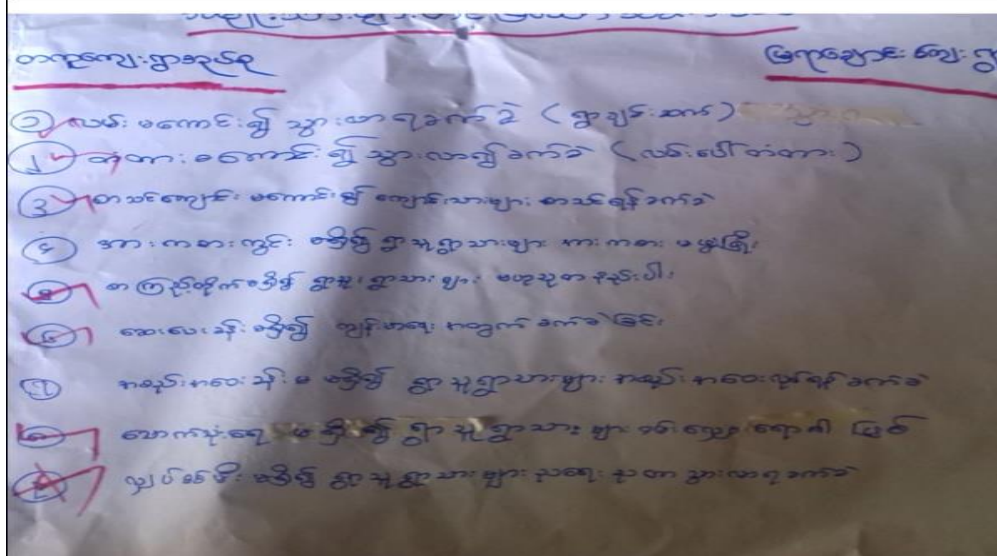 တကူကျေးရွာအုပ်စု ချောင်းကျေးရွာ
၁ လမ်းမကောင်း၍ သွားလာရခက်ခဲ (ရွာချင်းဆက်)
၂ တံတားမကောင်း၍ သွားလာ၍ခက်ခဲ (လမ်းပေါ်တံတား)
၃ စာသင်ကျောင်းမကောင်း၍ ကျောင်းသားများ စာသင်ရန်ခက်ခဲ
၄ အားကစားကွင်းမရှိ၍ ရွာသူရွာသားများ အားကစားမဖွံ့ဖြိုး
၅ စာကြည့်တိုက်မရှိ၍ ရွာသူရွာသားများ ဗဟုသုတနည်းပါး
၆ ဆေးပေးခန်းမရှိ၍ ကျန်းမာရေးအတွက်ခက်ခဲခြင်း
၇ အစည်းအဝေးခန်းမမရှိ၍ ရွာသူရွာသားများ အစည်းအဝေးလုပ်ရန်ခက်ခဲ
၈ သောက်သုံးရေမရှိ၍ ရွာသူရွာသားများ ဝမ်းလျှောရောဂါဖြစ်
၉ လျှပ်စစ်မီးမရှိ၍ ရွာသူရွာသားများ ညရေးညတာသွားလာရခက်ခဲ